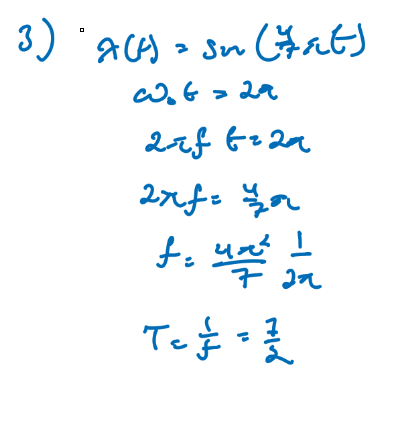 3) x(t) = sin (4/7 π t)
ω₀t = 2π
2πf t = 2π
2πf = 4/7 π
f = 4π²/7 1/2π
T = 1/f = 7/2